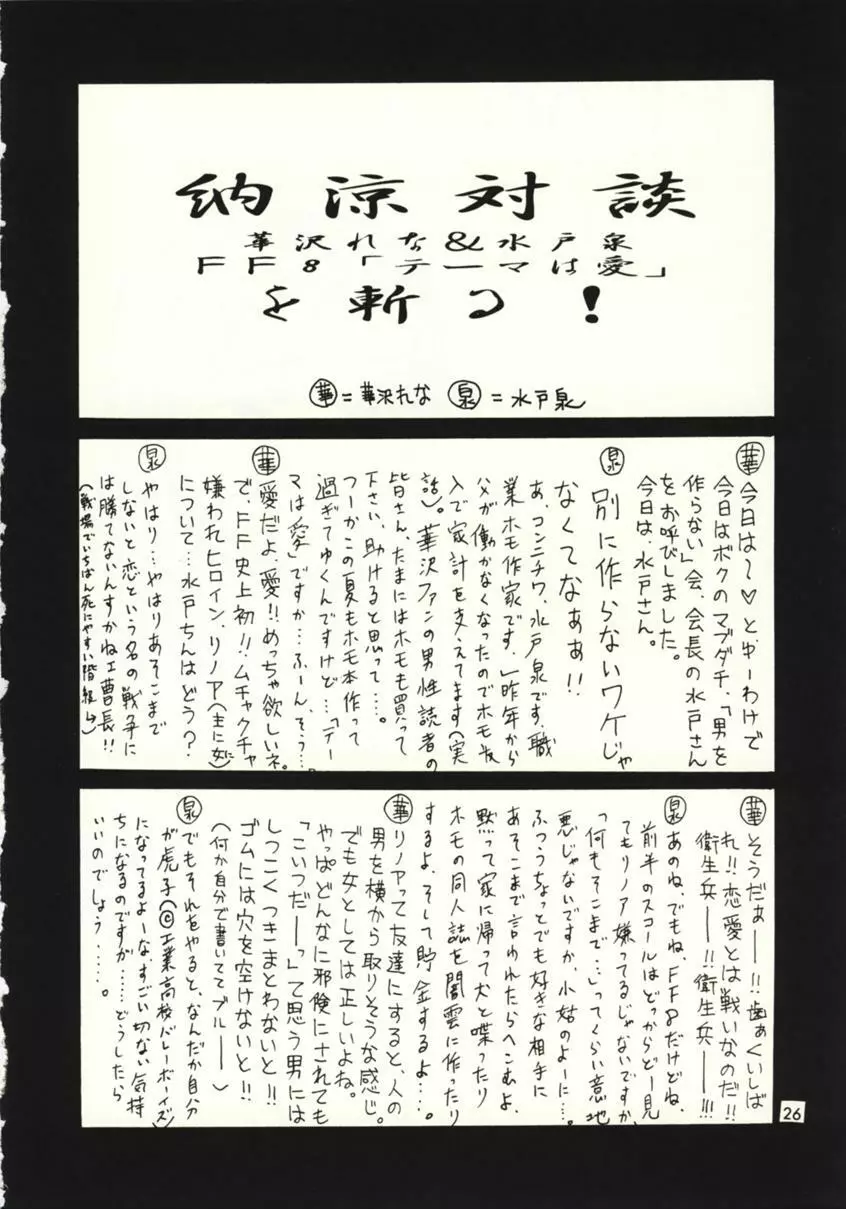 納涼対談
華沢れな&水戸泉
FF8「テーマは愛」
を斬る!
華=華沢れな 泉=水戸泉
華 今日は〜♡と、ゆーわけで
今日はボクのマブダチ、「男を
作らない」会、会長の水戸さん
をお呼びしました。
今日は、水戸さん。
泉 別に作らないワケじゃ
なくてなぁぁ!!
あ、コンニチワ、水戸泉です、職
業ホモ作家です。(昨年から
パパが働かなくなったのでホモ収
入で家計を支えてます(実
話)。華沢ファンの男性読者の
皆さん、たまにはホモも買って
下さい、助けると思って…。
つーかこの夏もホモ本作って
過ぎてゆくんですけど…「テー
マは愛」ですか…ふーん、そう…。
華 愛だよ、愛!!めっちゃ欲しいネ。
で、FF史上初!!ムチャクチャ
嫌われヒロイン、リノア(主に女に)
について…水戸ちんはどう?
泉 やはり…やはりあそこまで
しないと恋という名の戦争に
は勝てないんすかね工曹長!!
(戦場でいちばん死にやすい階級↑)
華 そうだぁー!!歯ぁくいしば
れ!!恋愛とは戦いなのだ!!
衛生兵ー!!衛生兵ー!!!
泉 あのね、でもね、FF8だけどね、
前半のスコールはどっからどー見
てもリノア嫌ってるじゃないですか、
「何もそこまで…」ってくらい意地
悪じゃないですか、小姑のよーに…。
ふつうちょっとでも好きな相手に
あそこまで言われたらへこむよ、
黙って家に帰って犬と喋ったり
ホモの同人誌を闇雲に作ったり
するよ、そして貯金するよ…。
華 リノアって友達にすると、人の
男を横から取りそうな感じ。
でも女としては正しいよね。
やっぱどんなに邪険にされても
「こいつだーっ」て思う男には
しつこくつきまとわないと!!
ゴムには穴を空けないと!!
(何か自分で書いててブルー)
泉 でもそれをやると、なんだか自分
が虎子(©工業高校バレーボーイズ)
になってるよーな、すごい切ない気持
ちになるのですが……どうしたら
いいのでしょう……。
26